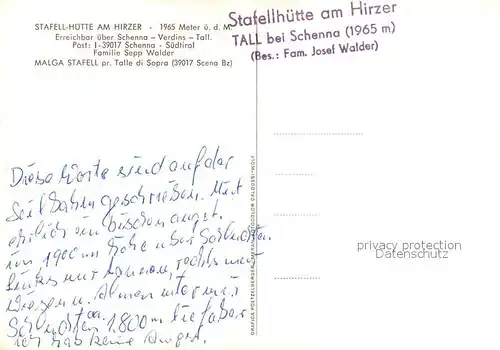 STAFELL-HÜTTE AM HIRZER - 1965 Meter ü. d. M.
Erreichbar über Schenna - Verdins - Tall.
Post: I-39017 Schenna - Südtirol
Familie Sepp Walder
MALGA STAFELL pr. Talle di Sopra (39017 Scena Bz)
Stafellhütte am Hirzer
TALL bei Schenna (1965 m)
(Bes.: Fam. Josef Walder)
Diese Karte sind auf der
Seilbahn geschrieben. Mit
ehrlich ein bischen angst.
in 1900 m Höhe über Schluchten.
links nur rechts nur
Wiesen u. Almen unter mir
Schluchten 1800 m tief aber
ich hab keine Angst.
GRAFICA POETZELBERGER
privacy protection
Datenschutz